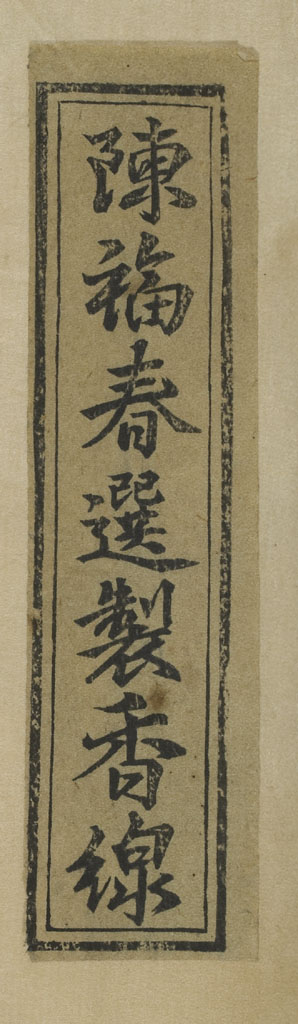 陳福春選製香線